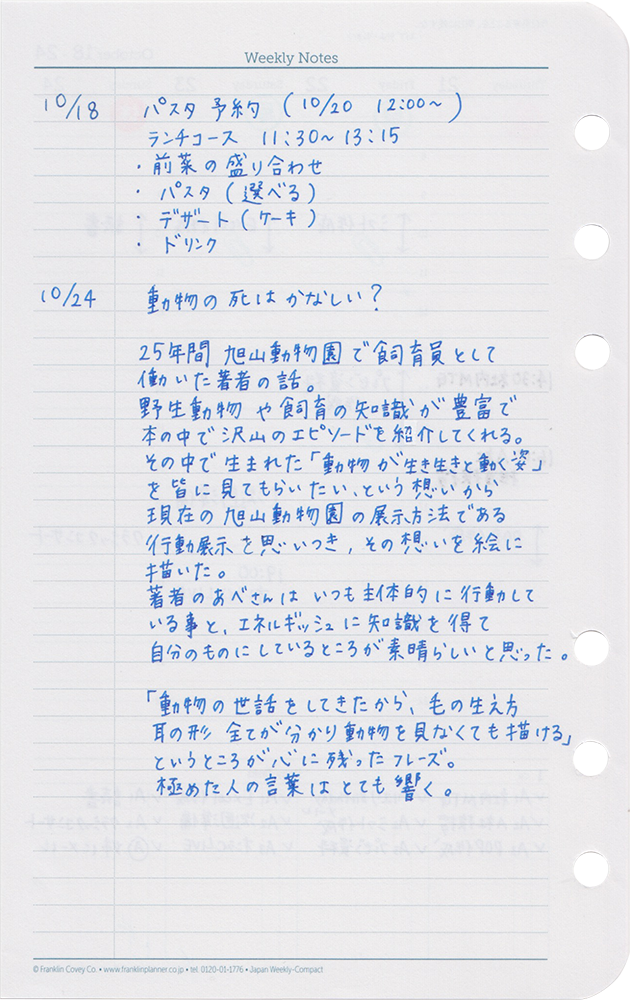 Weekly Notes
10/18 パスタ 予約 (10/20 12:00〜)
ランチコース 11:30〜13:15
・前菜の盛り合わせ
・パスタ(選べる)
・デザート(ケーキ)
・ドリンク
10/24 動物の死はかなしい?
25年間 旭山動物園で飼育員として
働いた著者の話。
野生動物や飼育の知識が豊富で
本の中で沢山のエピソードを紹介してくれる。
その中で生まれた「動物が生き生きと動く姿」
を皆に見てもらいたい、という想いから
現在の旭山動物園の展示方法である
行動展示を思いつき、その想いを絵に
描いた。
著者のあべさんはいつも主体的に行動して
いる事と、エネルギッシュに知識を得て
自分のものにしているところが素晴らしいと思った。
「動物の世話をしてきたから、毛の生え方
耳の形 全てが分かり動物を見なくても描ける」
というところが心に残ったフレーズ。
極めた人の言葉はとても響く。
© Franklin Covey Co. • www.franklinplanner.co.jp • tel. 0120-01-1776 • Japan Weekly-Compact